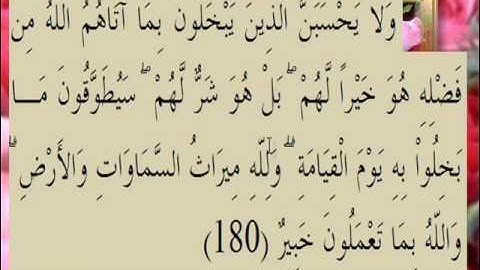 وَلَا يَحْسَبَنَّ الَّذِينَ يَبْخَلُونَ بِمَا آتَاهُمُ اللَّهُ مِن
فَضْلِهِ هُوَ خَيْراً لَّهُمْ ۖ بَلْ هُوَ شَرٌّ لَّهُمْ ۖ سَيُطَوَّقُونَ مَـــا
بَخِلُواْ بِهِ يَوْمَ الْقِيَامَةِ ۗ وَلِلَّهِ مِيرَاثُ السَّمَاوَاتِ وَالْأَرْضِ ۗ
وَاللَّهُ بِمَا تَعْمَلُونَ خَبِيرٌ (180)